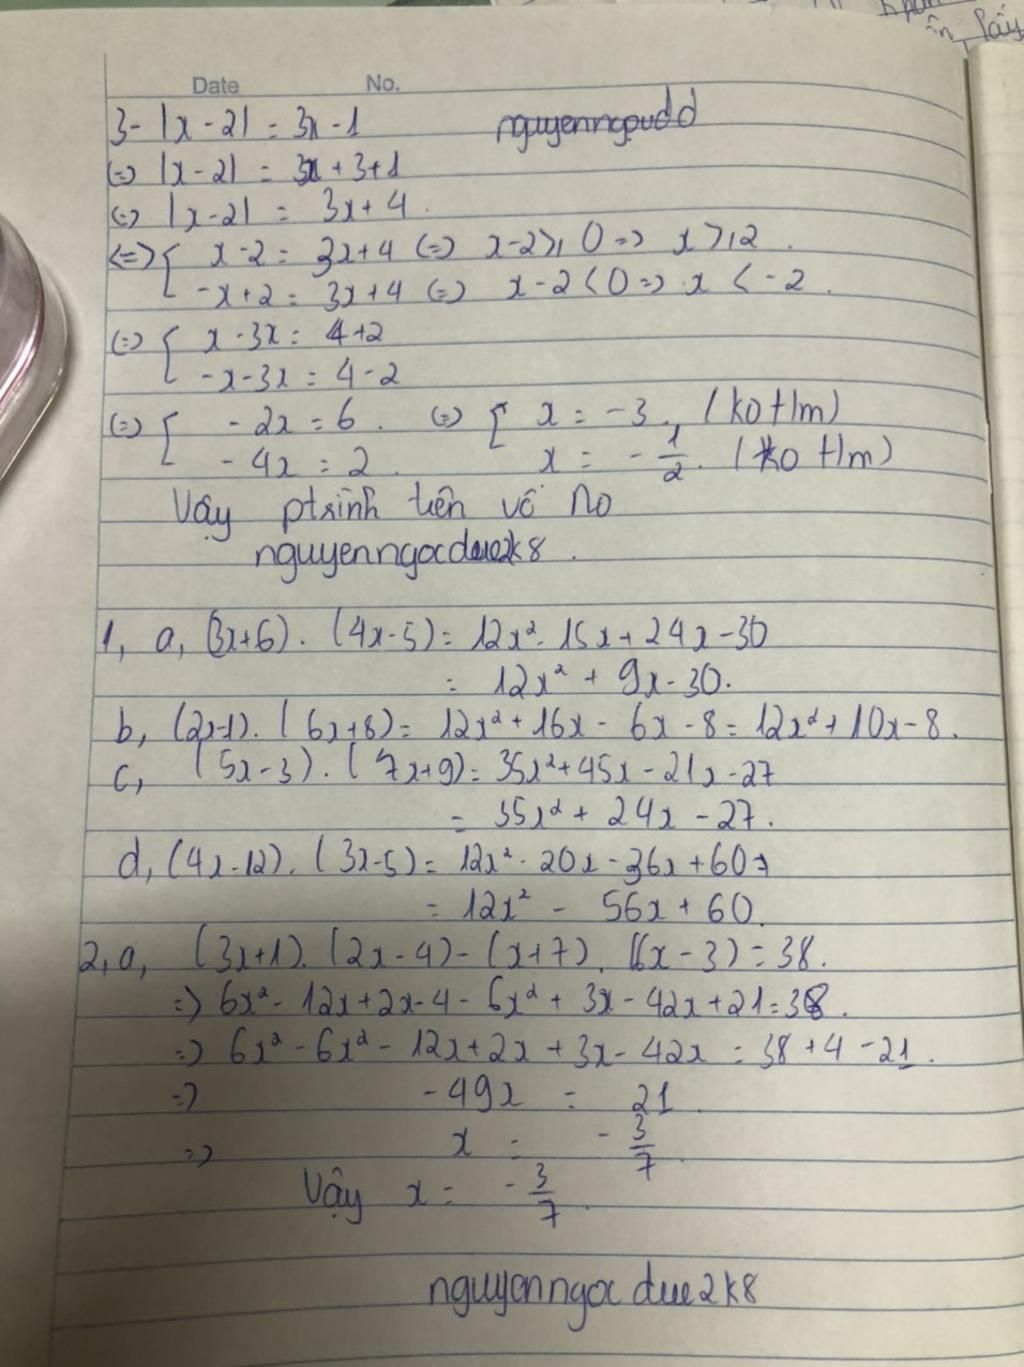 Date No.
3-|x-2| = 3x-1
(=) |x-2| = 3x+3+1
(=) |x-2| = 3x+4.
<=> { x-2 = 3x+4 (=) x-2 ≥ 0 => x ≥ 2.
-x+2 = 3x+4 (=) x-2 < 0 => x < -2.
(=) { x-3x = 4+2
-x-3x = 4-2
(=) [ -2x = 6. (=) [ x = -3 (ko t/m)
-4x = 2. x = -1/2. (ko t/m)
Vậy ptrình trên vô no
nguyenngocduc2k8.
1, a, (3x+6).(4x-5) = 12x²-15x+24x-30
= 12x² + 9x-30.
b, (2x-1).(6x+8) = 12x²+16x-6x-8 = 12x²+10x-8.
c, (5x-3).(7x+9) = 35x²+45x-21x-27
= 35x²+24x-27.
d, (4x-12).(3x-5) = 12x²-20x-36x+60
= 12x² - 56x+60.
2, a, (3x+1).(2x-4)-(x+7).(6x-3) = 38.
=> 6x²-12x+2x-4-6x²+3x-42x+21 = 38.
=> 6x²-6x²-12x+2x+3x-42x = 38+4-21.
=> -49x = 21.
=> x = -3/7.
Vậy x = -3/7.
nguyenngocduc2k8